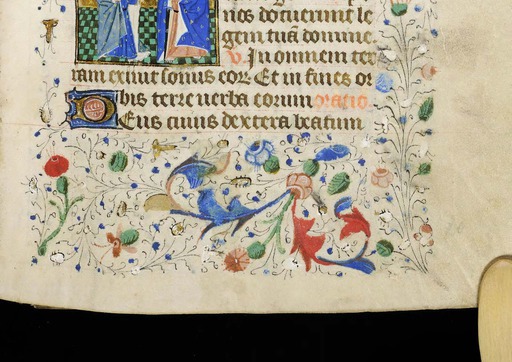 nos docuerunt le
gem tuā domine.
v. In omnem ter
ram exivit sonus eoꝝ. Et in fines or
bis terre verba eorum oratio
Deus cuius dextera beatum